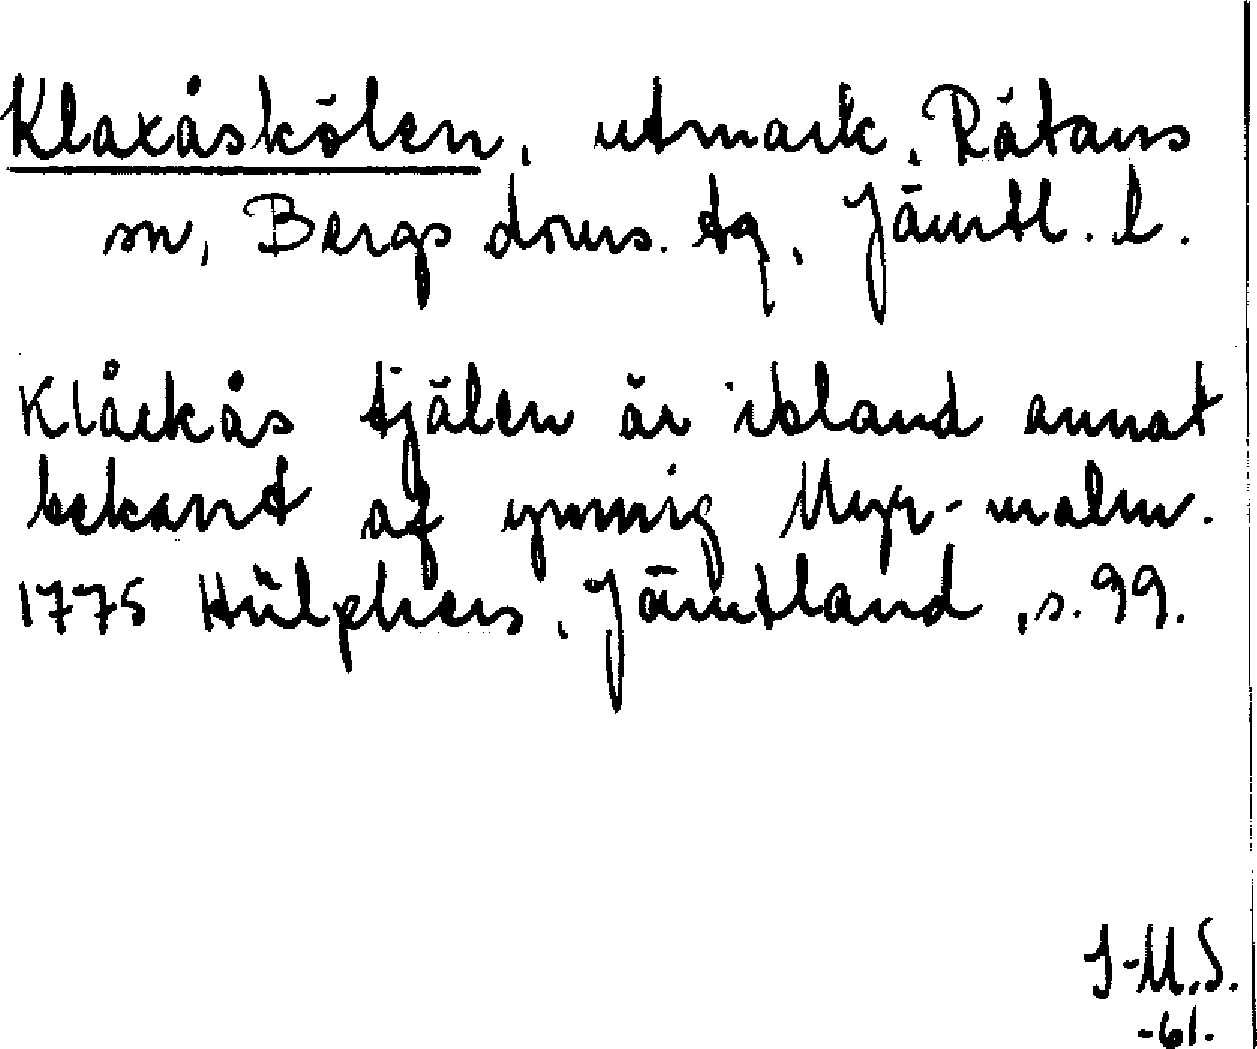 Klaxåskölen, utmark, Rätans
sn, Bergs doms. tg, Jämtl. l.
Klåckås tjälen är ibland annat
bekant af ymnig Myr-malm.
1775 Hülphers, Jämtland, s. 99.
I-M.S.
-61.